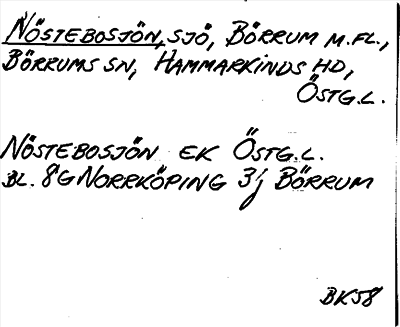 NÖSTEBOSJÖN, SJÖ, BÖRRUM M.FL.,
BÖRRUMS SN, HAMMARKINDS HD,
ÖSTG.L.
NÖSTEBOSJÖN EK ÖSTG.L.
BL. 8G NORRKÖPING 3j BÖRRUM
BK58